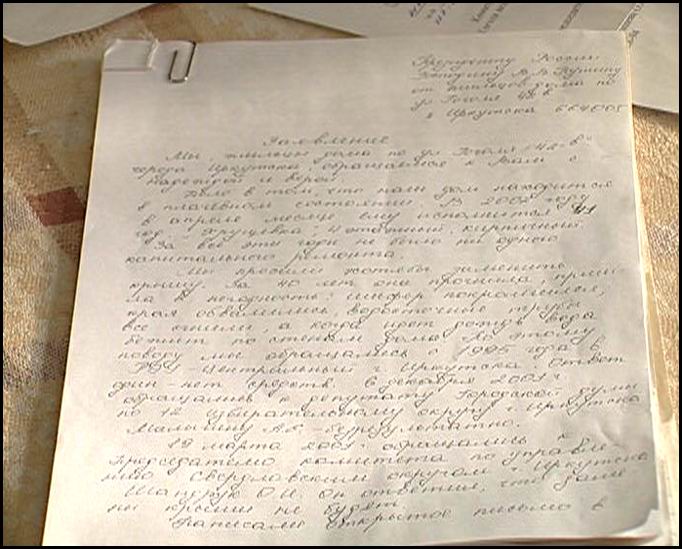 Президенту России
Господину В.В. Путину
от жильцов дома по
ул. Гоголя 42 в
г. Иркутска 664005
Заявление
Мы, жильцы дома по ул. Гоголя, 42-в
города Иркутска обращаемся к Вам с
надеждой и верой.
Дело в том, что наш дом находится
в плачевном состоянии. В 2002 году
в апреле месяце ему исполнится 41
год. "Хрущевка", 4 этажный, кирпичный.
За все эти годы не было ни одного
капитального ремонта.
Мы просили хотябы заменить
крышу. За 40 лет она прогнила,
ла в негодность: шифер покрошился,
края обвалились, водосточные трубы
все сгнили, а когда идет дождь вода
бежит по стенам дома. По этому
поводу мы обращались с 1995 года в
Центральный г. Иркутска. Ответ
один - нет средств. 6 декабря 2001 г.
обращались к депутату Городской думы
по 12 избирательному округу г. Иркутска
Малышну А.С. - безрезультатно.
19 марта 2001 обращались к
председателю комитета по управле-
нию Свердловским округом г. Иркутска
О.И. Он ответил, что даже
крыши не будет.
Написали открытое письмо в